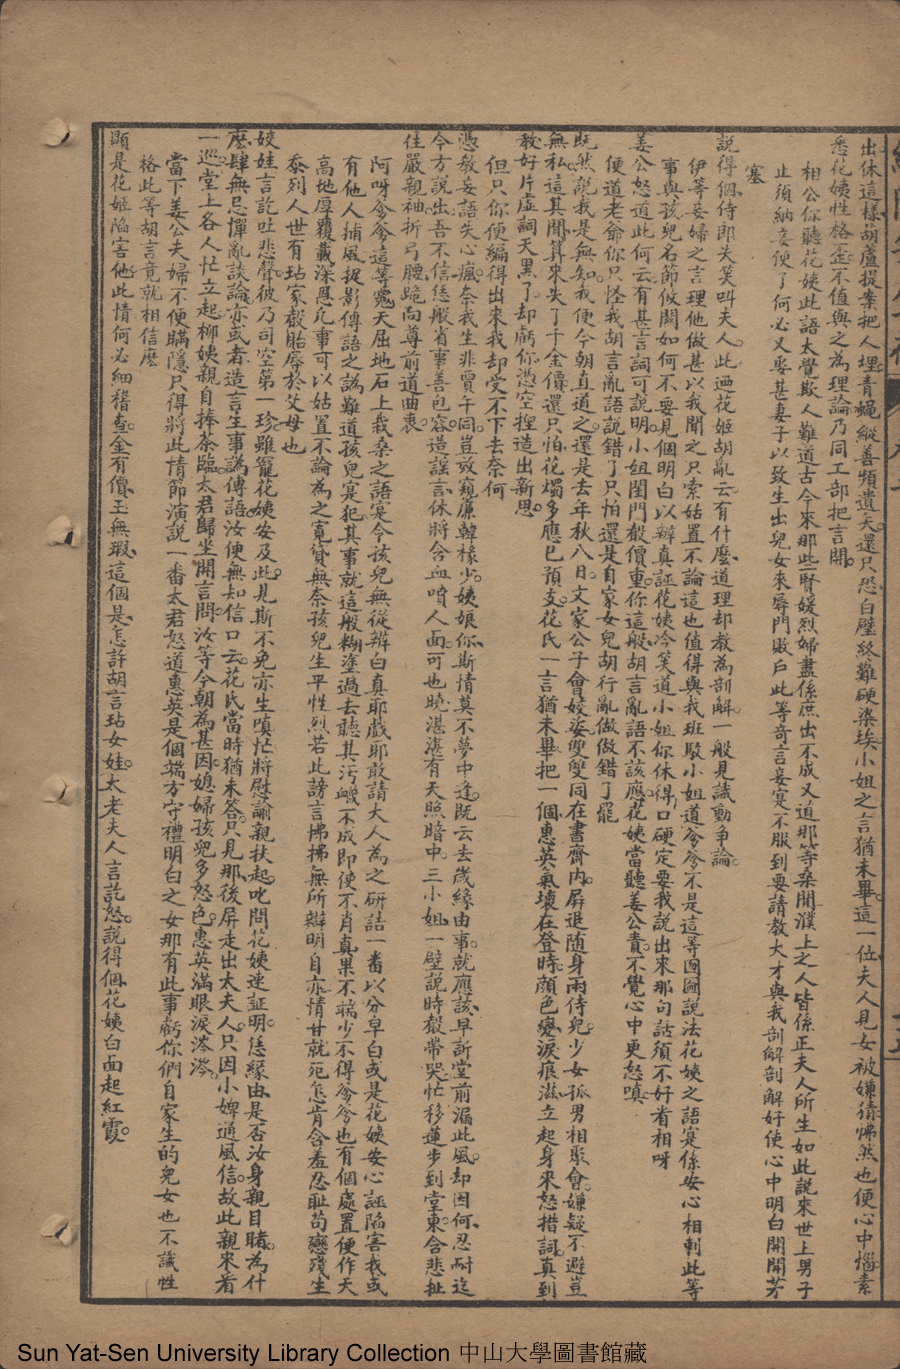 出休這樣葫蘆提案把人埋青蠅縱善頻遺天還只恐白璧終難硬染埃小姐之言猶未畢這一位夫人見女被嫌猜怫然也便心中惱素
悉花姨性格歪不值與之為理論乃同工部把言開
相公你聽花姨此語太覺欺人難道古今來那些賢媛烈婦盡係庶出不成又道那等桑間濮上之人皆係正夫人所生如此說來世上男子
止須納妾便了何必又娶甚妻子以致生出兒女來辱門敗戶此等奇言妾寔不服到要請教大才與我剖解剖解好使心中明白開開芳
塞
說得個侍郎失笑叫夫人此迺花姬胡亂云有什麼道理却教為剖解一般見識動爭論
伊等妾婦之言理他做甚以我聞之只索姑置不論這也值得與我班駁小姐道爹爹不是這等囫圇說法花姨之語寔係安心相刺此等
事與孩兒名節攸關如何不要見個明白以辨真誣花姨冷笑道小姐你休得口硬定要我說出來那句話須不好看相呀
姜公怒道此何云有甚言詞可說明小姐閨門聲價重你這般胡言亂語不該應花姨當聽姜公責不覺心中更怒嗔
便道老爺你只怪我胡言亂語說錯了只怕還是自家女兒胡行亂做做錯了罷
既然說我是無知我便今朝直道之還是去年秋八日文家公子會姣姿雙雙同在書齋内屏退随身兩侍兒少女孤男相聚會嫌疑不避豈
無私這其間算來失了千金價還只怕花燭多應已預支花氏一言猶未畢把一個惠英氣壞在登時顔色變淚痕滋立起身來怒措詞真到
教好片虛詞天黑了却虧你憑空捏造出新思
但只你便編得出來我却受不下去奈何
憑教妄語失心瘋奈我生非賈午同豈效窺簾韓椽少姨娘你斯情莫不夢中逢既云去歲緣由事就應該早訴堂前漏此風却因何忍耐迄
今方說出吾不信恁般省事善包容造謠言休將含血噴人面可也曉湛湛有天照暗中三小姐一壁説時聲帶哭忙移蓮步到堂東含悲扯
住嚴親袖折弓腰跪向尊前道曲衷
阿呀爹爹這等冤天屈地石上栽桑之語寔令孩兒無從辨白真耶戲耶敢請大人為之研詰一畨以分皁白或是花姨安心誣陷害我或
有他人捕風捉影傳語之譌難道孩兒寔犯其事就這般糊塗過去聽其污衊不成即使不肖真果不端少不得爹爹也有個處置便作天
高地厚覆載深恩凡事可以姑置不論為之寬貸無奈孩兒生平性烈若此謗言怫拂無所辯明自亦情甘就死怎肯含羞忍耻苟戀殘生
忝列人世有玷家聲貽辱於父母也
姣娃言訖吐悲聲彼乃司空第一珍雖寵花姨安及此見斯不免亦生嗔忙將慰諭親扶起叱問花姨速証明恁緣由是否汝身親目睹為什
麼肆無忌憚亂談論亦或者造言生事譌傳語汝便無知信口云花氏當時猶未答只見那後屏走出太夫人只因小婢通風信故此親來看
一巡堂上各人忙立起柳姨親自捧茶臨太君歸坐開言問汝等今朝為甚因媳婦孩兒多怒色惠英滿眼淚涔涔
當下姜公夫婦不便瞞隱只得將此情節演說一番太君怒道惠英是個端方守禮明白之女那有此事虧你們自家生的兒女也不識性
格此等胡言竟就相信麽
顯是花姬陷害他此情何必細稽查金有價玉無瑕這個是怎許胡言玷女娃太老夫人言訖怒說得個花姨白面起紅霞
Sun Yat-Sen University Library Collection 中山大學圖書館藏